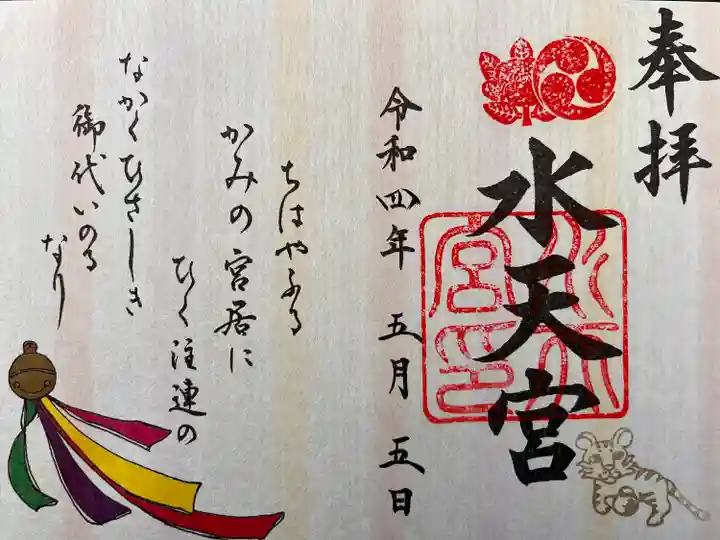 奉拝
水天宮
令和四年 五月 五日
ちはやふる
かみの宮居に
ひく注連の
なかくひさしき
御代いのる
なり